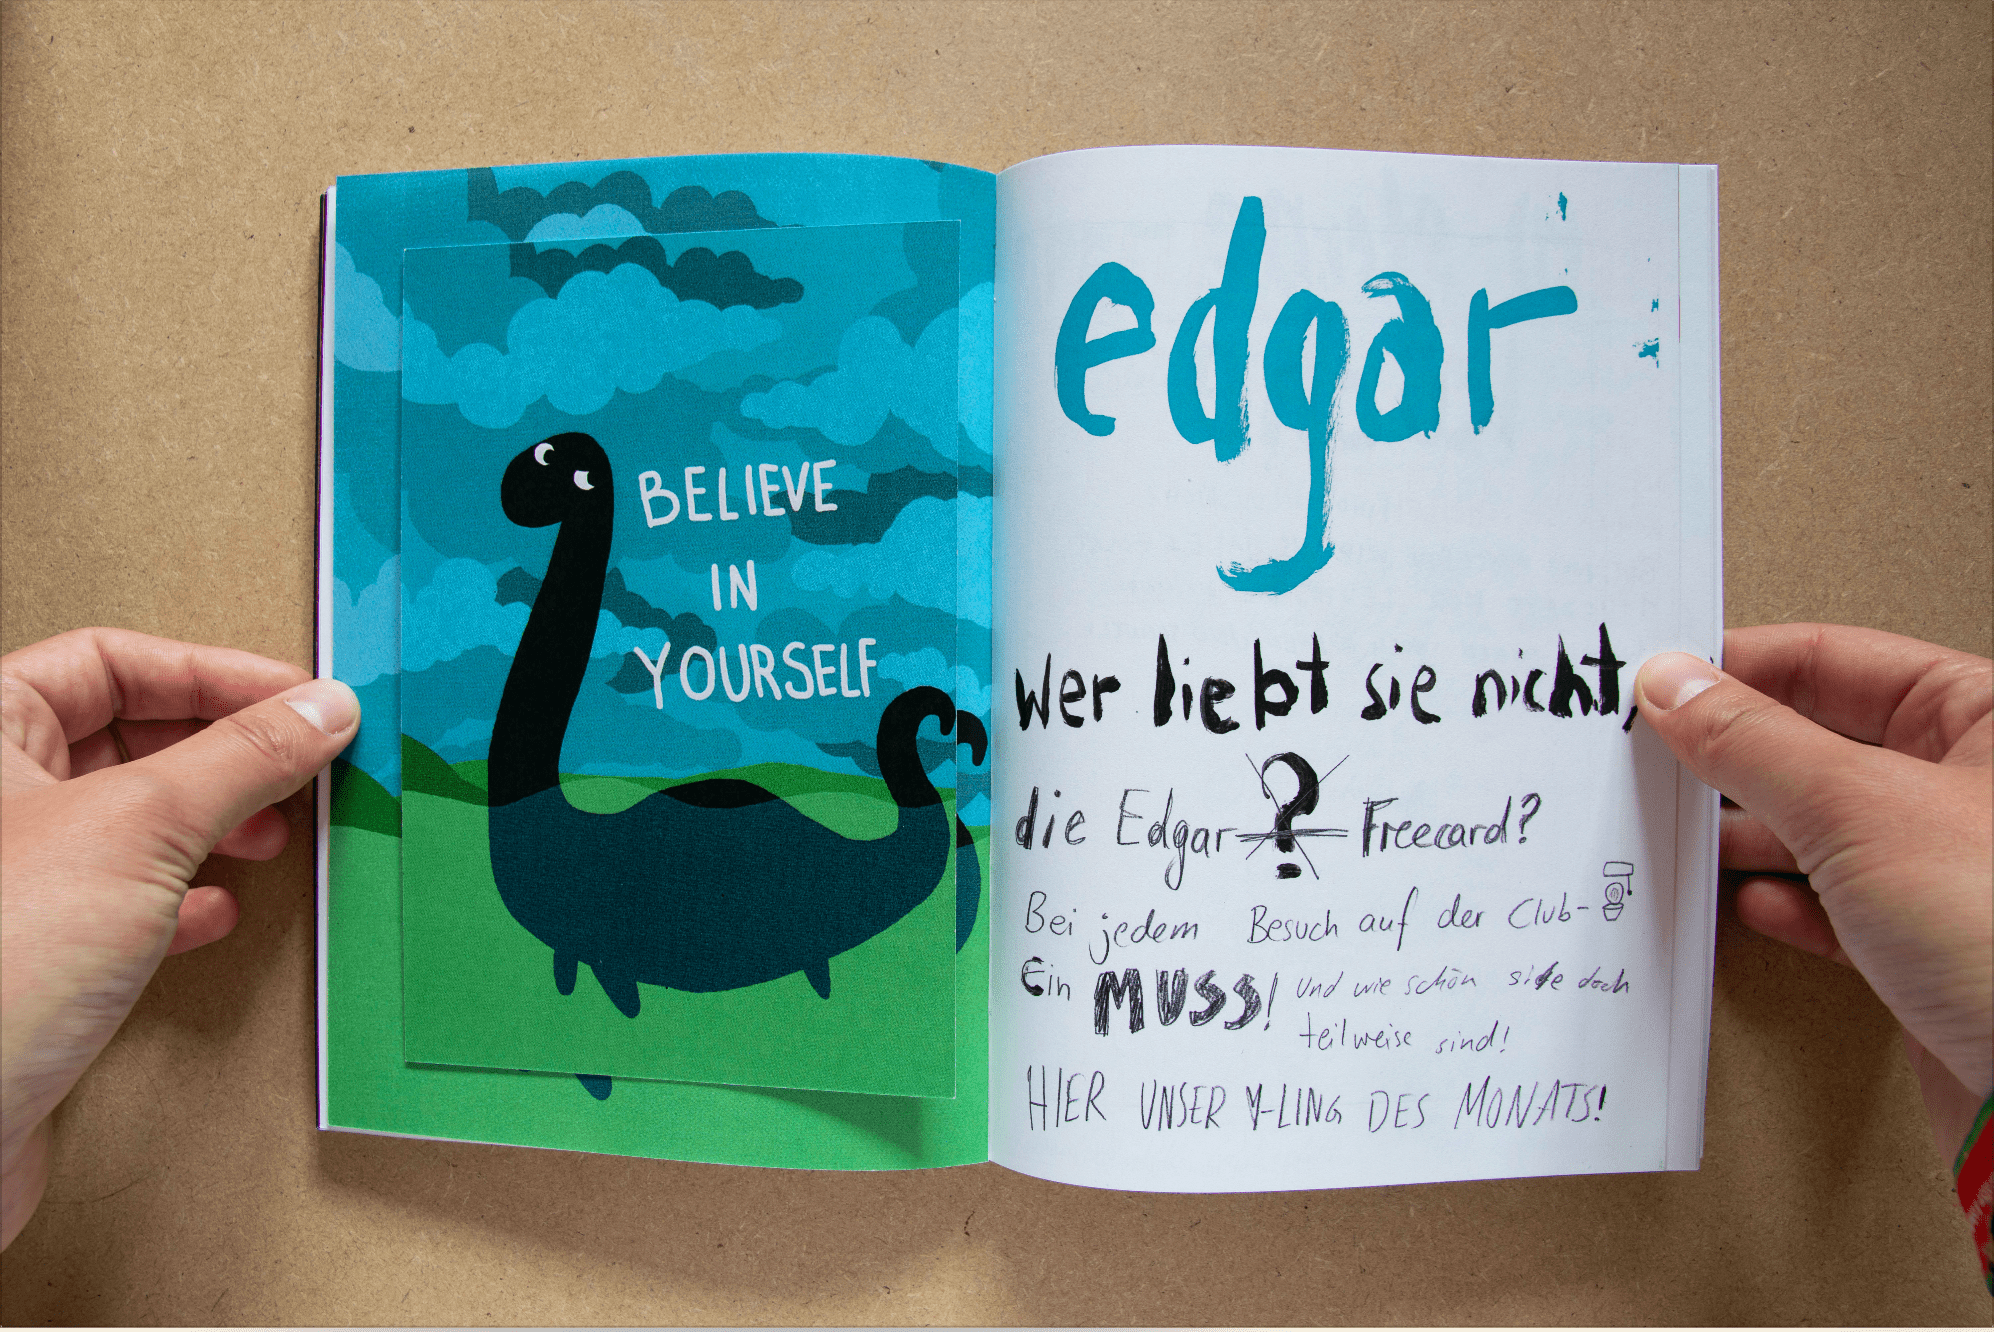 BELIEVE
IN
YOURSELF
edgar
wer liebt sie nicht,
die Edgar ? Freecard?
Bei jedem Besuch auf der Club-
Ein MUSS! Und wie schön sie doch
teilweise sind!
HIER UNSER Y-LING DES MONATS!